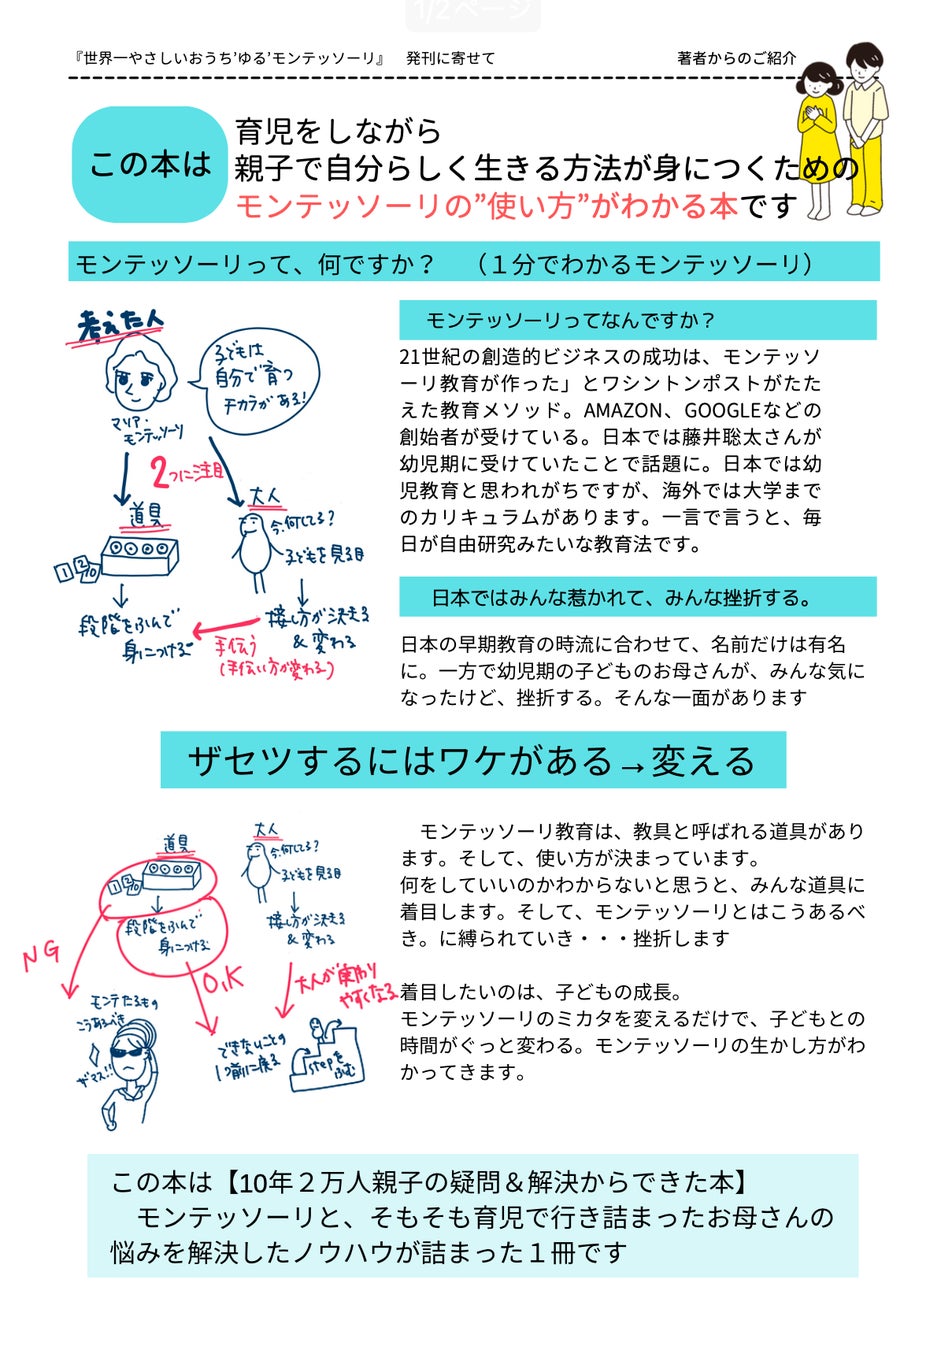 1/2ページ
『世界一やさしいおうち’ゆる’モンテッソーリ』　発刊に寄せて
著者からのご紹介
この本は
育児をしながら
親子で自分らしく生きる方法が身につくための
モンテッソーリの”使い方”がわかる本です
モンテッソーリって、何ですか？　（１分でわかるモンテッソーリ）
考えた人
子どもは
自分で育つ
チカラがある!
マリア・
モンテッソーリ
2つに注目
道具
大人
今、何してる?
子どもを見る目
1 2 10
段階をふんで
身につける
接し方が決まる
& 変わる
手伝う
(手伝い方が変わる)
モンテッソーリってなんですか？
21世紀の創造的ビジネスの成功は、モンテッソ
ーリ教育が作った」とワシントンポストがたた
えた教育メソッド。AMAZON、GOOGLEなどの
創始者が受けている。日本では藤井聡太さんが
幼児期に受けていたことで話題に。日本では幼
児教育と思われがちですが、海外では大学まで
のカリキュラムがあります。一言で言うと、毎
日が自由研究みたいな教育法です。
日本ではみんな惹かれて、みんな挫折する。
日本の早期教育の時流に合わせて、名前だけは有名
に。一方で幼児期の子どものお母さんが、みんな気に
なったけど、挫折する。そんな一面があります
ザセツするにはワケがある→変える
道具
大人
今、何してる?
子どもを見る目
1 2 10
段階をふんで
身につける
接し方が決まる
& 変わる
NG
O,K
大人が変わり
やすくなる
モンテたるもの
こうあるべき
ザマス!!
できないことの
1つ前に戻る
stepを
ふむ
　モンテッソーリ教育は、教具と呼ばれる道具があり
ます。そして、使い方が決まっています。
何をしていいのかわからないと思うと、みんな道具に
着目します。そして、モンテッソーリとはこうあるべ
き。に縛られていき・・・挫折します
着目したいのは、子どもの成長。
モンテッソーリのミカタを変えるだけで、子どもとの
時間がぐっと変わる。モンテッソーリの生かし方がわ
かってきます。
この本は【10年２万人親子の疑問＆解決からできた本】
　モンテッソーリと、そもそも育児で行き詰まったお母さんの
悩みを解決したノウハウが詰まった１冊です